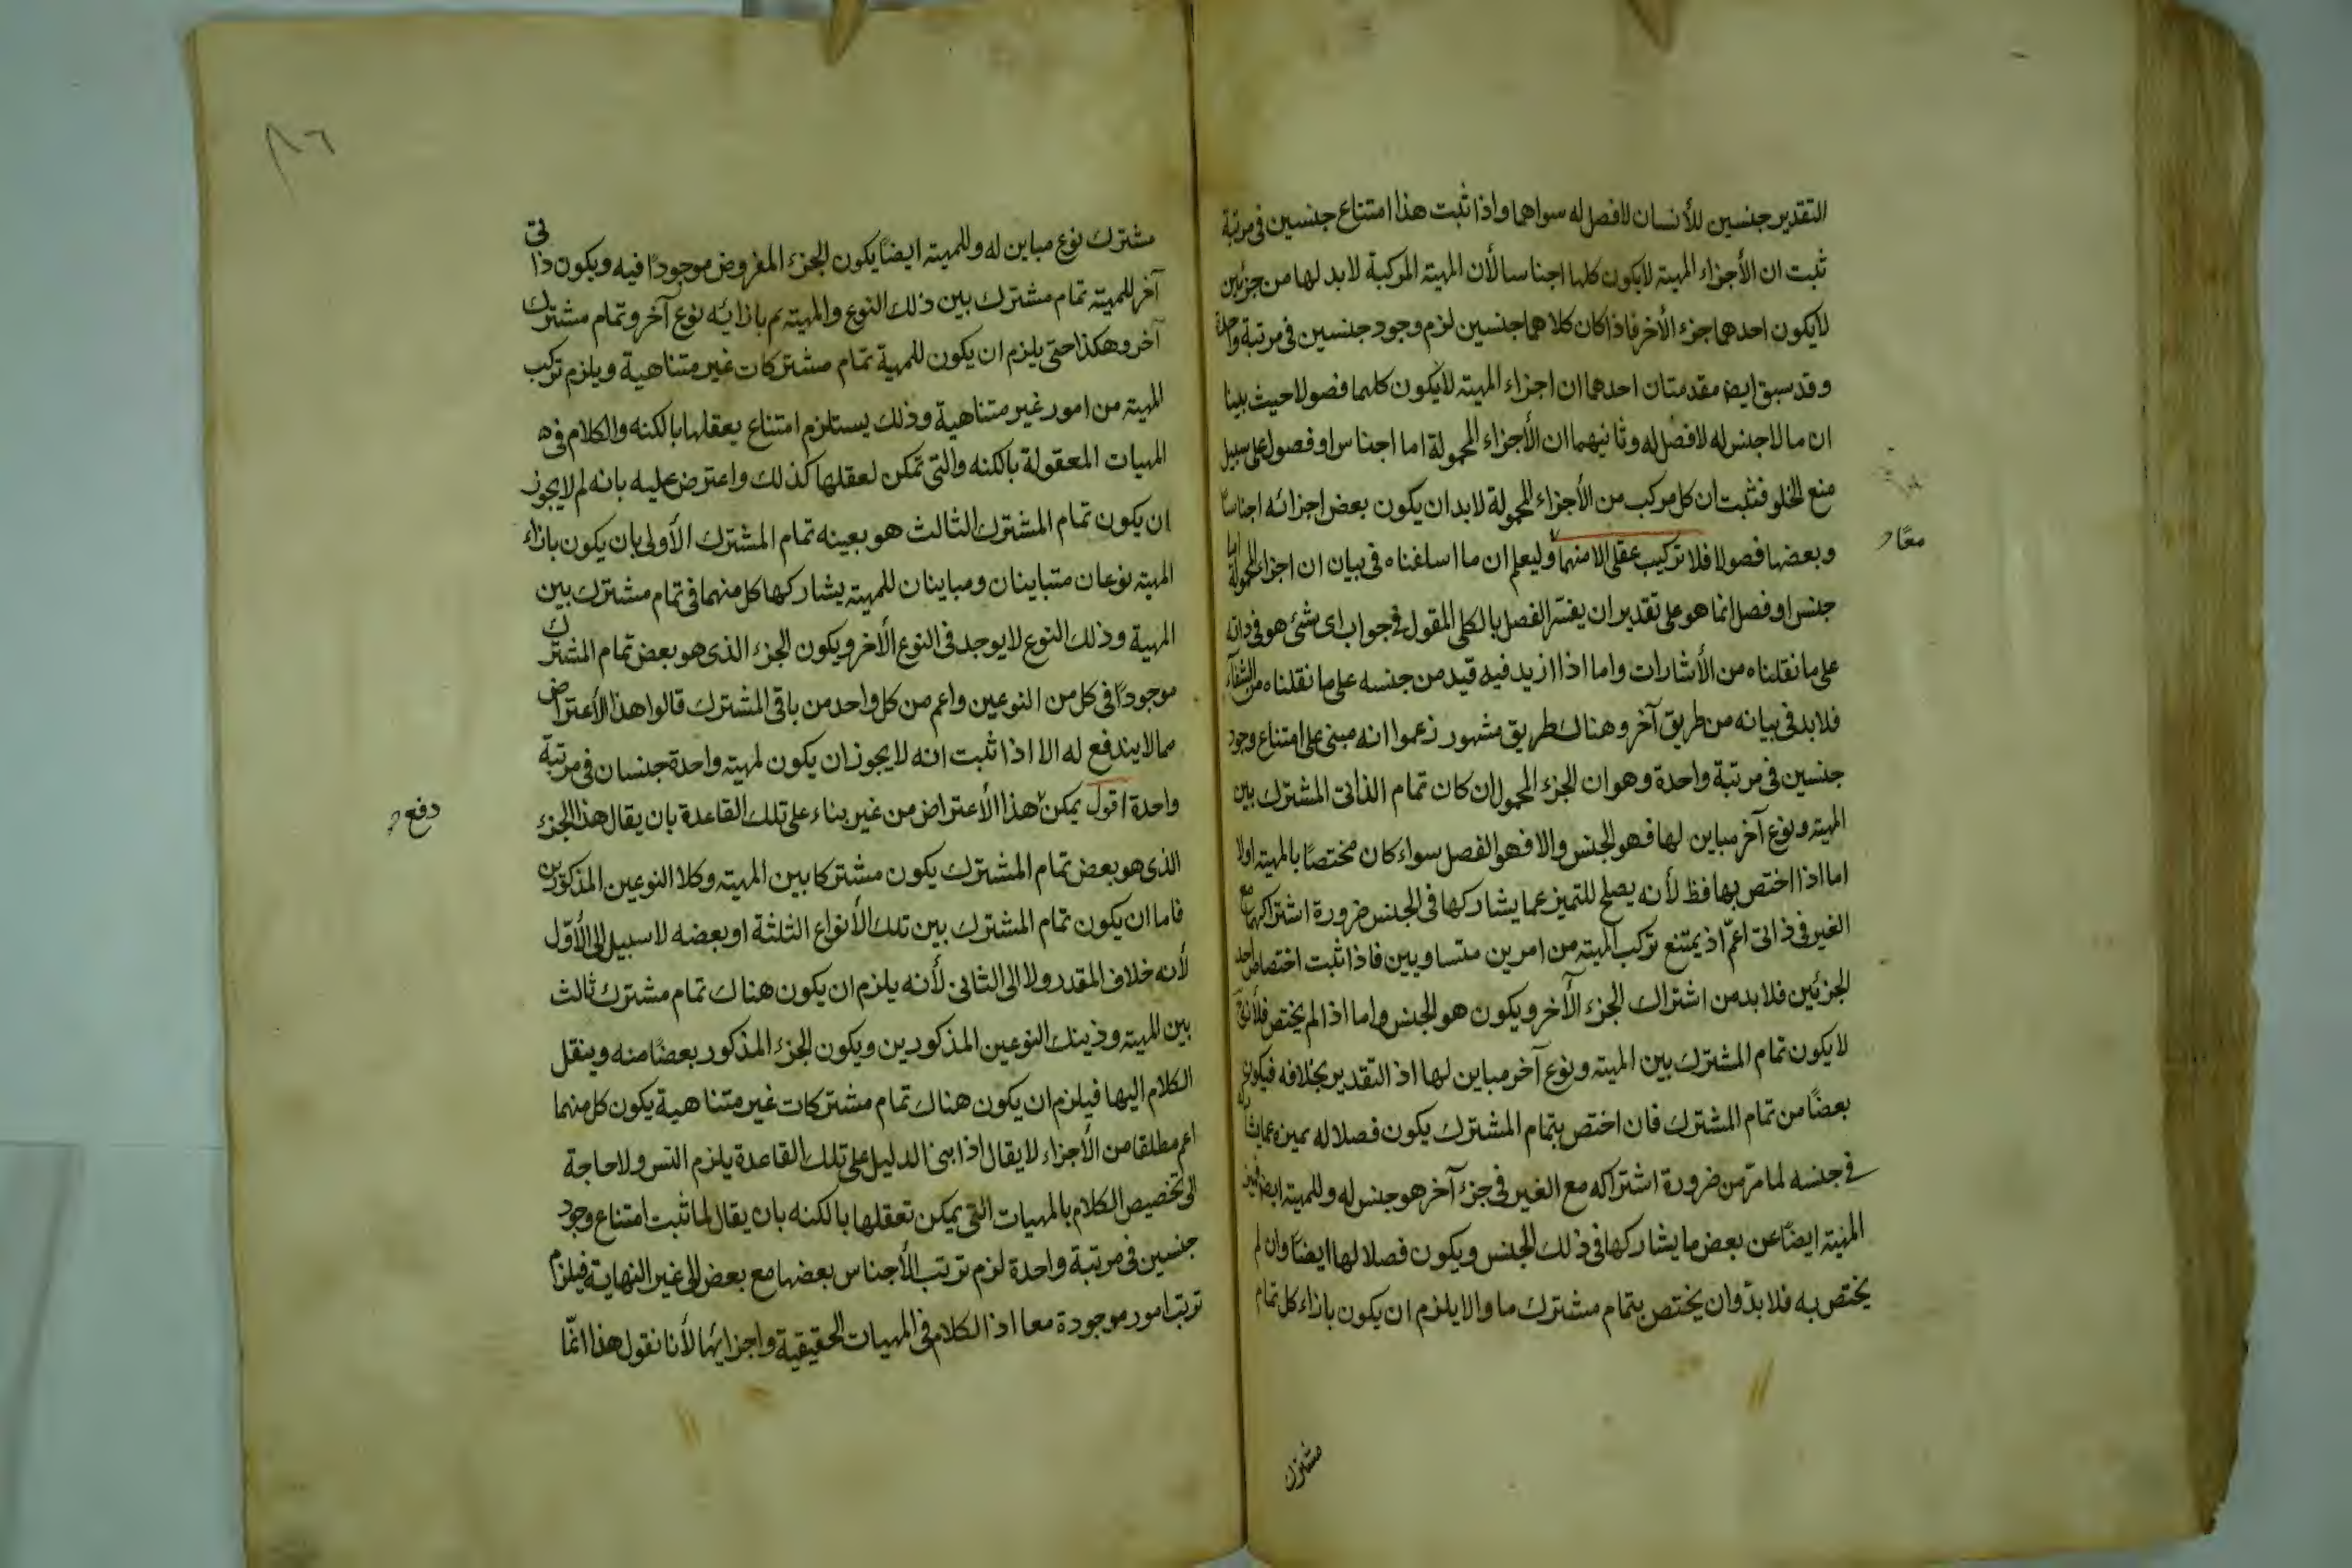 التقدير جنسين للأنسان لا فصل له سواهما واذا ثبت هذا امتناع جنسين فى مرتبة
ثبت ان الأجزاء المهيته لا يكون كلها اجناسا لأن المهيته المركبة لا بد لها من جزئين
لا يكون احدهما جزء الأخر فاذا كان كلاهما جنسين لزم وجود جنسين فى مرتبة واحدة
وقد سبق ايضا مقدمتان احدهما ان اجزاء المهيته لا يكون كلها فصولا حيث بينا
ان ما لا جنس له لا فصل له وثانيهما ان الأجزاء المحمولة اما اجناس او فصول على سبيل
منع الخلو فثبت ان كل مركب من الأجزاء المحمولة لا بد ان يكون بعض اجزائه اجناسا
وبعضها فصولا فلا تركيب عقلى الا منهما وليعلم ان ما اسلفناه فى بيان ان اجزاء المحمولة اما
معًا
جنس او فصل انما هو على تقدير ان يفسر الفصل بالكلى المقول فى جواب اى شئ هو فى ذاته
على ما نقلناه من الأشارات واما اذا ازيد فيه قيد من جنسه على ما نقلناه من الشفاء
فلا بد فى بيانه من طريق آخر وهناك طريق مشهور زعموا انه مبنى على امتناع وجود
جنسين فى مرتبة واحدة وهو ان الجزء المحمول ان كان تمام الذاتى المشترك بين
المهيته ونوع آخر مباين لها فهو الجنس والا فهو الفصل سواء كان مختصًا بالمهيته اولا
اما اذا اختص بها فظ لأنه يصلح للتميز عما يشاركها فى الجنس ضرورة اشتراكها مع
الغير فى ذاتى اعمّ اذ يمتنع تركب المهيته من امرين متساويين فاذا ثبت اختصاص احد
الجزئين فلا بد من اشتراك الجزء الآخر ويكون هو الجنس واما اذا لم يختص فلأنه
لا يكون تمام المشترك بين المهيته ونوع آخر مباين لها اذ التقدير بخلافه فيكون
بعضًا من تمام المشترك فان اختص بتمام المشترك يكون فصلا له يميزه عما يشاركه
فى جنسه لما مر من ضرورة اشتراكه مع الغير فى جزء آخر هو جنس له وللمهيته ايضا فيميز
المهيته ايضًا عن بعض ما يشاركها فى ذلك الجنس ويكون فصلا لها ايضًا وان لم
يختص به فلا بدّ وان يختص بتمام مشترك ما والا يلزم ان يكون بازاء كل تمام
مشترك
١٨٦
مشترك نوع مباين له وللمهيته ايضًا يكون الجزء المفروض موجودًا فيه ويكون ذاتى
آخر للمهيته تمام مشترك بين ذلك النوع والمهيته ثم بازائه نوع آخر وتمام مشترك
آخر وهكذا حتى يلزم ان يكون للمهية تمام مشتركات غير متناهية ويلزم تركب
المهيته من امور غير متناهية وذلك يستلزم امتناع تعقلها بالكنه والكلام فى
المهيات المعقولة بالكنه والتى تمكن لعقلها كذلك واعترض عليه بانه لم لا يجوز
ان يكون تمام المشترك الثالث هو بعينه تمام المشترك الأولى بان يكون بازاء
المهيته نوعان متباينان ومباينان للمهيته يشاركها كل منهما فى تمام مشترك بين
المهية وذلك النوع لا يوجد فى النوع الأخر ويكون الجزء الذى هو بعض تمام المشترك
موجودًا فى كل من النوعين واعم من كل واحد من باقى المشترك قالوا هذا الأعتراض
مما لا يندفع له الا اذا ثبت انه لا يجوز ان يكون لمهيته واحدة جنسان فى مرتبة
واحدة اقول يمكن هذا الأعتراض من غير بناء على تلك القاعدة بان يقال هذا الجزء
دفع
الذى هو بعض تمام المشترك يكون مشتركا بين المهيته وكلا النوعين المذكورين
فاما ان يكون تمام المشترك بين تلك الأنواع الثلثة او بعضه لا سبيل الى الأوّل
لأنه خلاف المقدر ولا الى الثانى لأنه يلزم ان يكون هناك تمام مشترك ثالث
بين المهيته وذينك النوعين المذكورين ويكون الجزء المذكور بعضًا منه وينقل
الكلام اليها فيلزم ان يكون هناك تمام مشتركات غير متناهية يكون كل منهما
اعم مطلقا من الأجزاء لا يقال اذا بنى الدليل على تلك القاعدة يلزم التس ولا حاجة
الى تخصيص الكلام بالمهيات التى يمكن تعقلها بالكنه بان يقال لما ثبت امتناع وجود
جنسين فى مرتبة واحدة لزم ترتب الأجناس بعضها مع بعض الى غير النهاية فيلزم
ترتب امور موجودة معا اذ الكلام فى المهيات الحقيقية واجزائها لأنا نقول هذا انّما